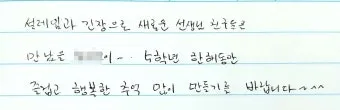 설레임과 긴장으로 새로운 선생님 친구들은
만남은 이~.. 5학년 한해동안
즐겁고 행복한 추억 많이 만들기를 바랍니다~^^